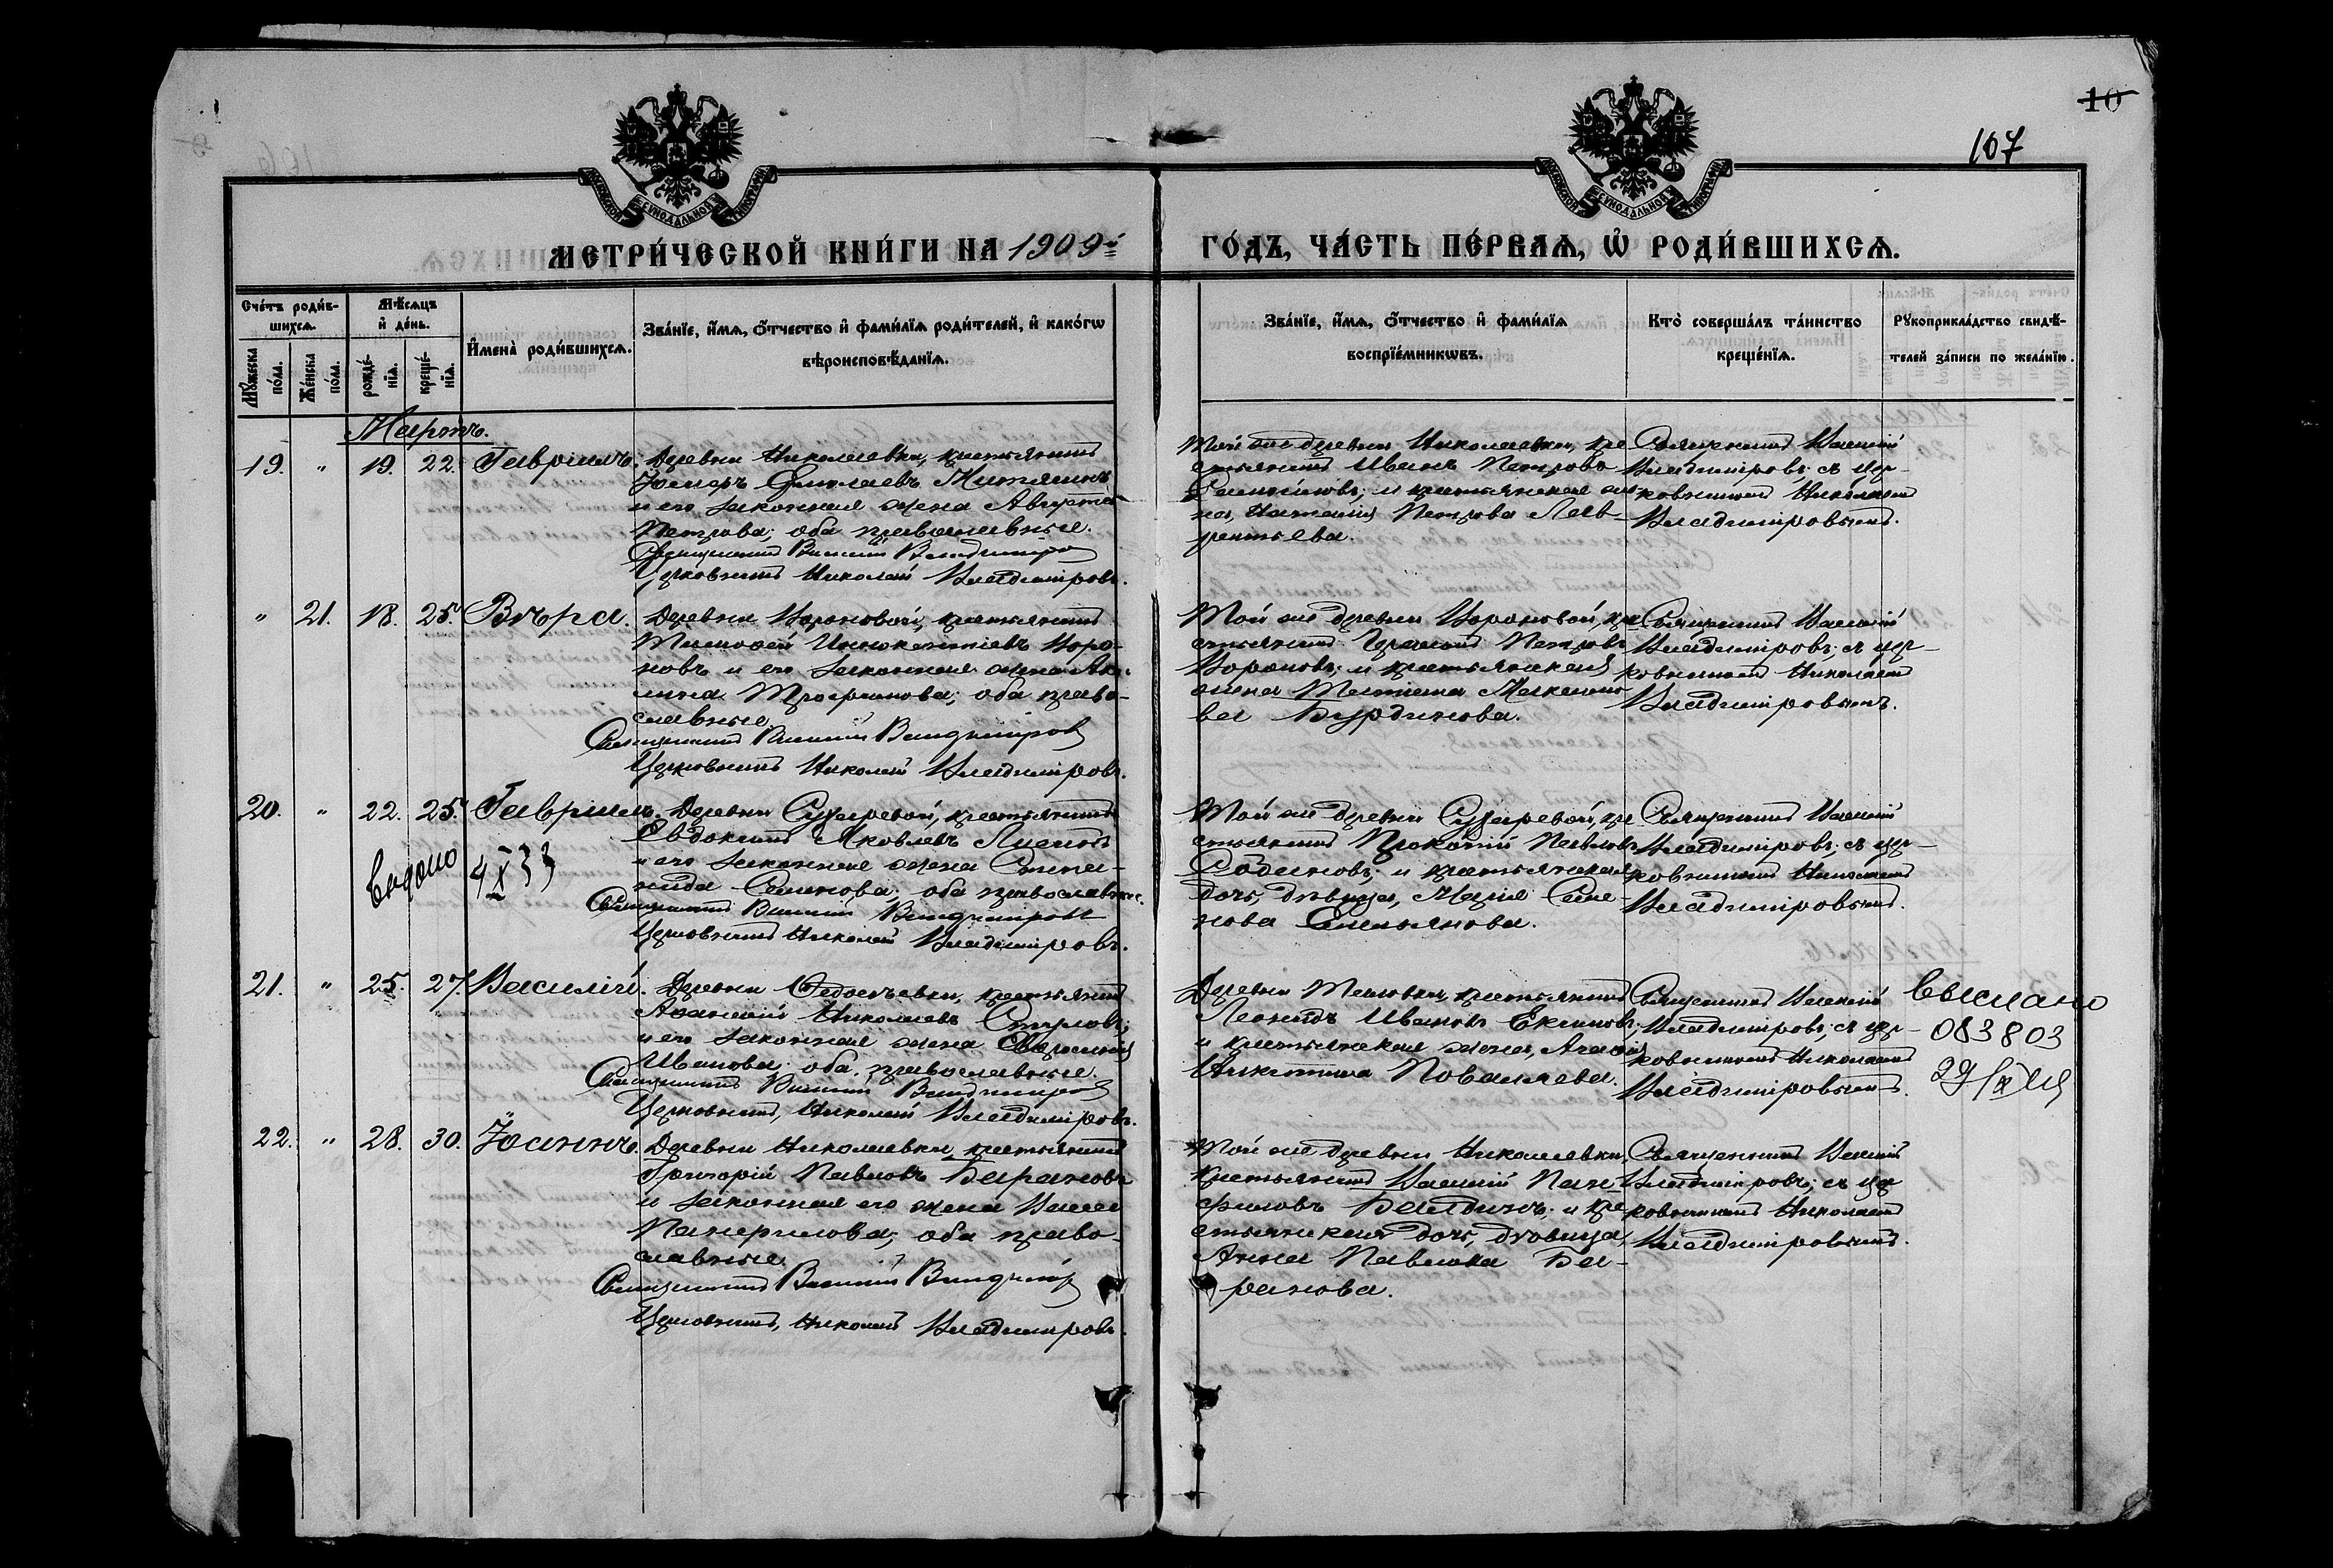 10
107
МОСКОВСКОЙ СѴНОДАЛЬНОЙ ТИПОГРАФІИ
МОСКОВСКОЙ СѴНОДАЛЬНОЙ ТИПОГРАФІИ
МЕТРИ́ЧЕСКОЙ КНИ́ГИ НА 1909й
ГО́ДЪ, ЧА́СТЬ ПЕ́РВАѦ, Ѡ҆ РОДИ́ВШИХСѦ.
Сче́тъ роди́в-
шихсѧ.
Мѣ́сѧцъ
и҆ де́нь.
Мꙋ́жеска по́ла.
Же́нска по́ла.
рожде́-
нїѧ.
креще́-
нїѧ.
И҆мена̀ роди́вшихсѧ.
Зва́нїе, и҆́мѧ, ѻ҆́тчество и҆ фами́лїѧ роди́телей, и҆ како́гѡ
вѣроисповѣ́данїѧ.
Зва́нїе, и҆́мѧ, ѻ҆́тчество и҆ фами́лїѧ
воспрїе́мникѡвъ.
Кто̀ соверша́лъ та́инство
креще́нїѧ.
Рꙋкоприкла́дство свидѣ́-
телей за́писи по жела́нїю.
Мартъ.
19. " 19. 22. Гавріилъ.
Деревни Николаевки, крестьянинъ
Ермолаевъ
и его законная жена
Петрова; оба православные.
Священникъ Василій Владиміровъ
Церковникъ Николай Владиміровъ.
Той же деревни Николаевки, кре
стьянинъ Иванъ Петровъ
и крестьянская же-
на, Наталія Петрова Лав-
рентьева.
Священникъ Василій
Владиміровъ; съ цер-
ковникомъ Николаемъ
Владиміровымъ.
" 21. 18. 25. Вѣра.
Деревни Вороновой, крестьянинъ
Тимофей Иннокентіевъ Воро-
новъ и его законная жена Аку-
лина Трофимова; оба право-
славные.
Священникъ Василій Владиміровъ
Церковникъ Николай Владиміровъ.
Той же деревни Вороновой, кре
стьянинъ Петровъ
Вороновъ; и крестьянская
жена Татіана Максимо-
ва Бурдинова.
Священникъ Василій
Владиміровъ; съ цер-
ковникомъ Николаемъ
Владиміровымъ.
20. " 22. 25. Гавріилъ.
Деревни Сухаревой, крестьянинъ
Евдокимъ Яковлевъ
и его законная жена Степа-
нида Семенова; оба православные.
Священникъ Василій Владиміровъ
Церковникъ Николай Владиміровъ.
Выдано 4 X 33
Той же деревни Сухаревой, кре
стьянинъ Прокопій Павловъ
и крестьянская
дочь, дѣвица, Марія Семе-
нова Емельянова.
Священникъ Василій
Владиміровъ; съ цер-
ковникомъ Николаемъ
Владиміровымъ.
21. " 25. 27. Василій.
Деревни Ѳедосѣевки, крестьянинъ
Аѳанасій Николаевъ
и его законная жена
Иванова; оба православные.
Священникъ Василій Владиміровъ
Церковникъ, Николай Владиміровъ.
Деревни крестьянинъ
Леонидъ Ивановъ Екимовъ;
и крестьянская жена,
Никитина Поваляева.
Священникъ Василій
Владиміровъ; съ цер-
ковникомъ Николаемъ
Владиміровымъ.
выслано
083803
22. " 28. 30. Іоаннъ.
Деревни Николаевки, крестьянинъ
Григорій Павловъ Барановъ
и законная его жена Васса
Панфилова; оба право-
славные.
Священникъ Василій Владиміровъ
Церковникъ, Николай Владиміровъ.
Той же деревни Николаевки,
крестьянинъ Василій Пан-
филовъ и кре
стьянская дочь, дѣвица,
Анна Павлова Ба-
ранова.
Священникъ Василій
Владиміровъ; съ цер
ковникомъ Николаемъ
Владиміровымъ.